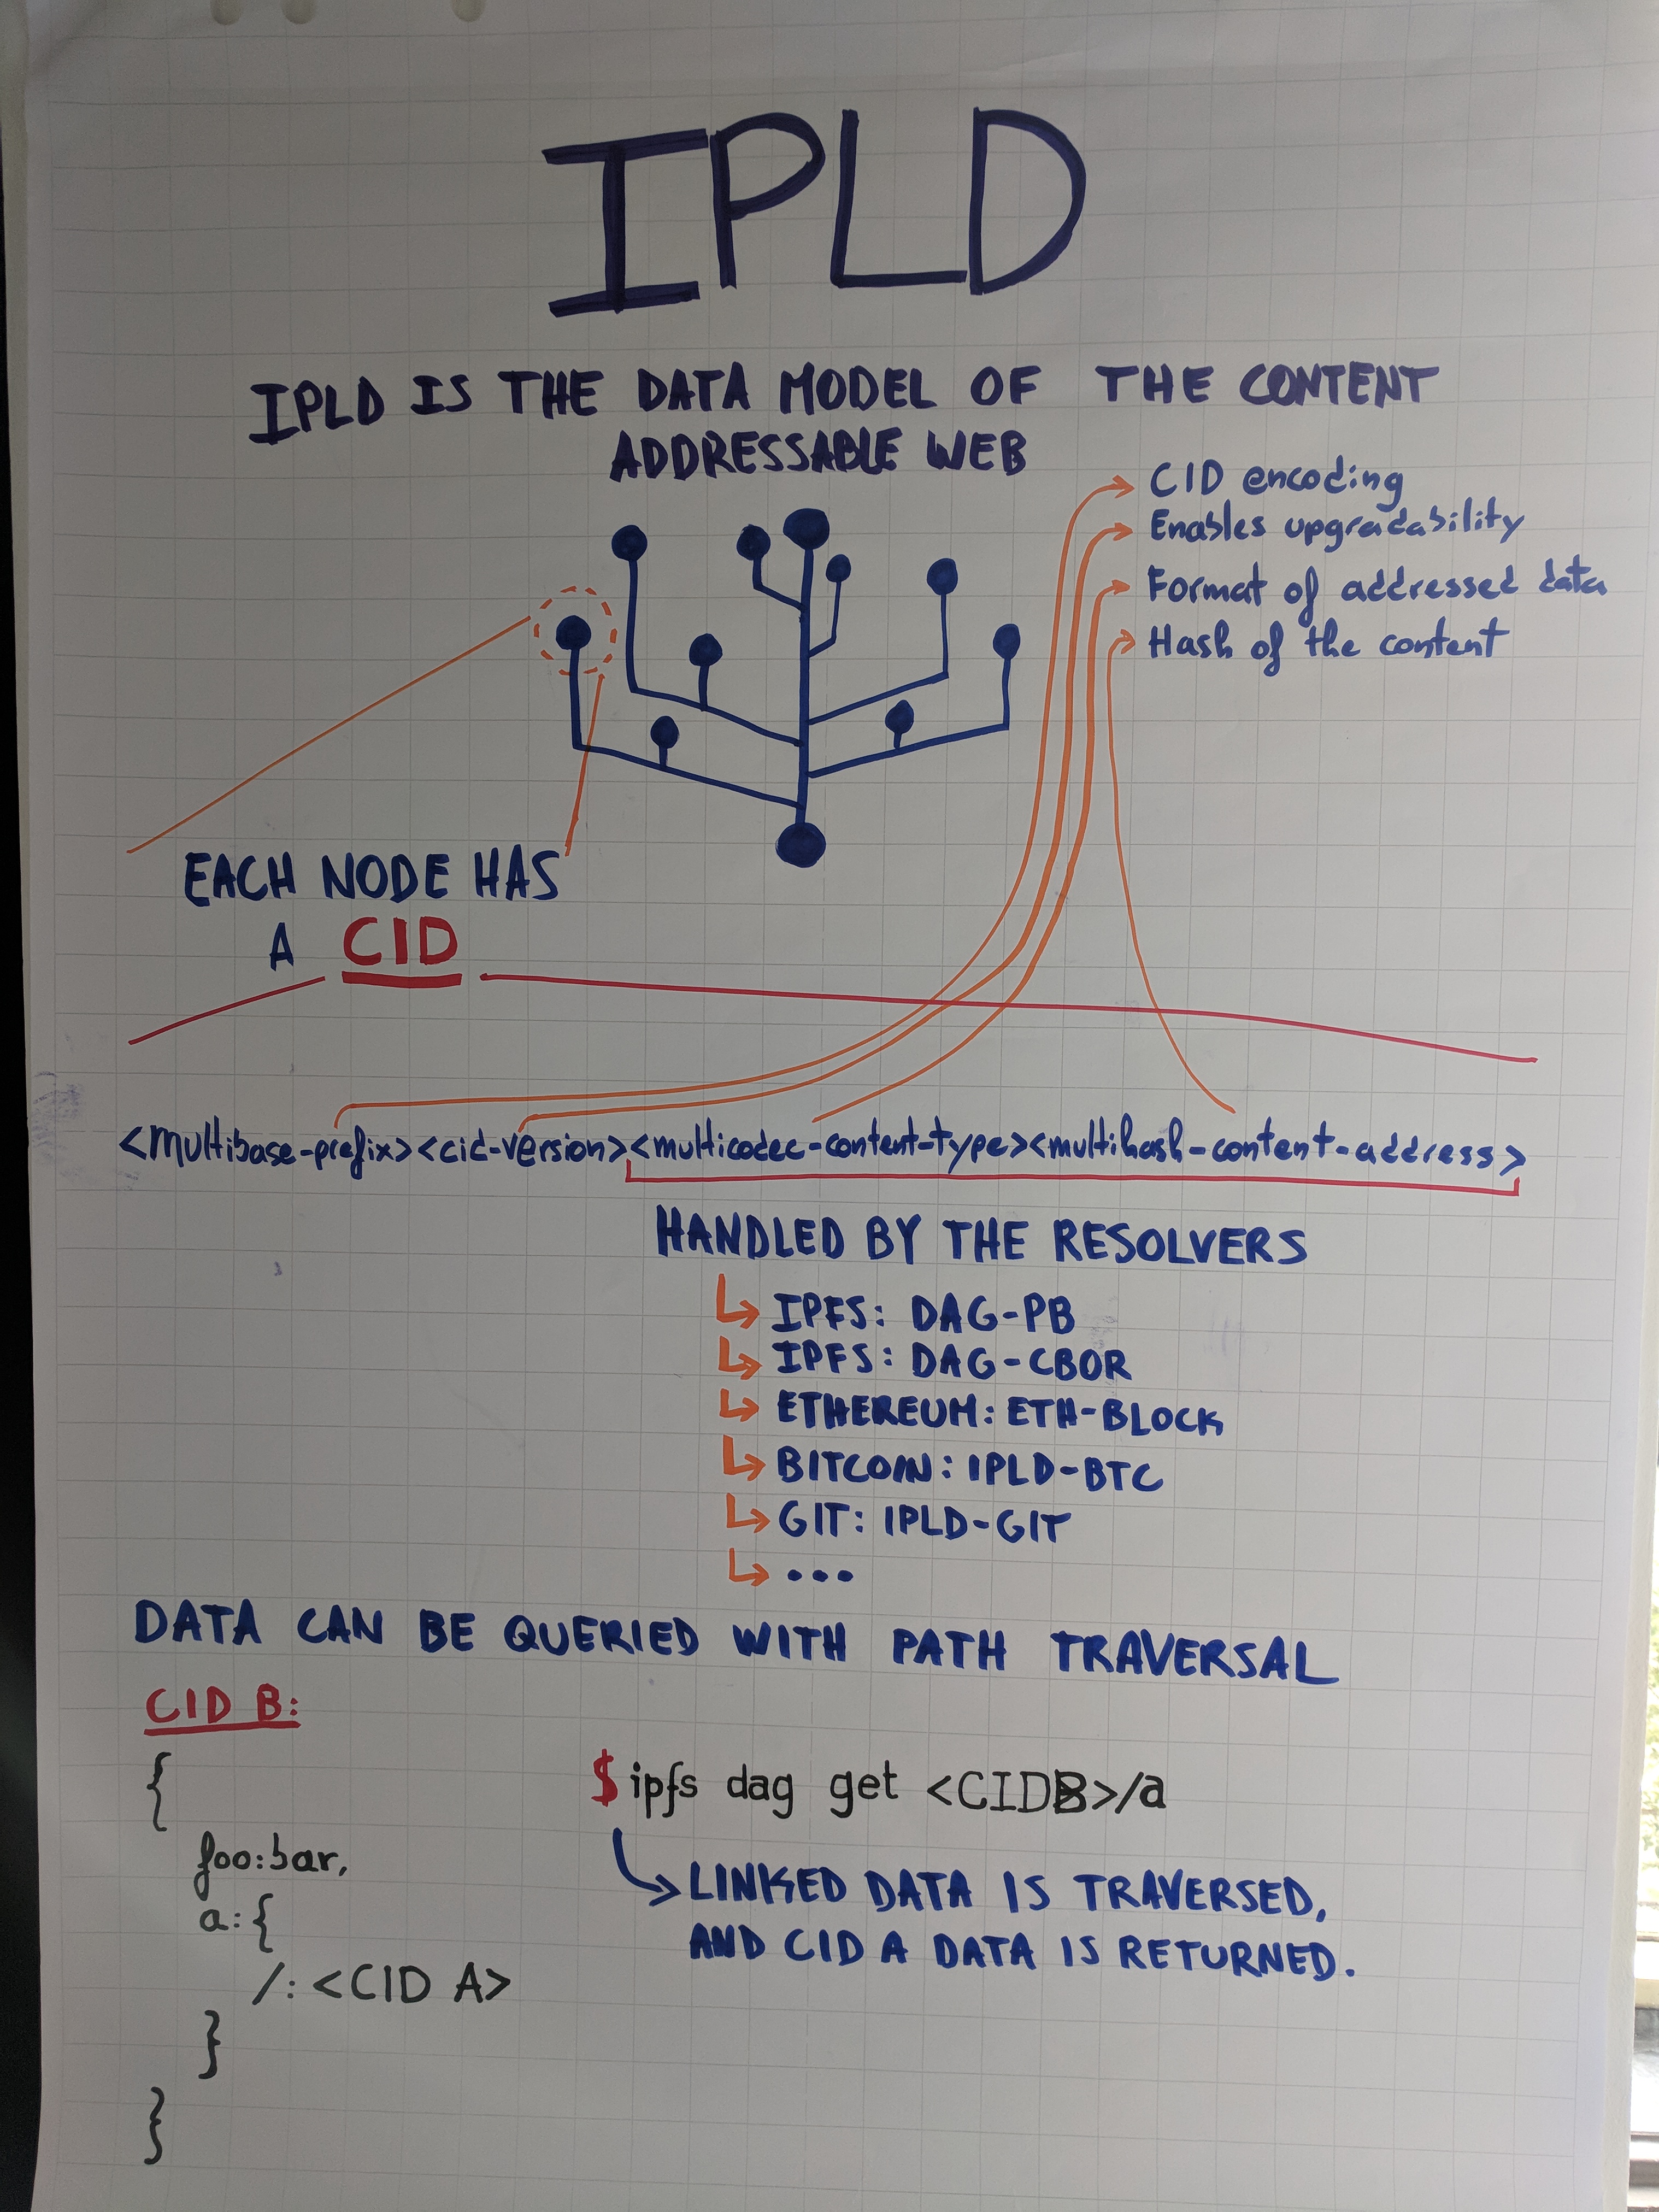 IPLD
IPLD IS THE DATA MODEL OF THE CONTENT
ADDRESSABLE WEB
CID encoding
Enables upgradability
Format of addressed data
Hash of the content
EACH NODE HAS
A CID
<multibase-prefix><cid-version><multicodec-content-type><multihash-content-address>
HANDLED BY THE RESOLVERS
IPFS: DAG-PB
IPFS: DAG-CBOR
ETHEREUM: ETH-BLOCK
BITCOIN: IPLD-BTC
GIT: IPLD-GIT
...
DATA CAN BE QUERIED WITH PATH TRAVERSAL
CID B:
{
foo:bar,
a:{
/: <CID A>
}
}
$ ipfs dag get <CIDB>/a
LINKED DATA IS TRAVERSED,
AND CID A DATA IS RETURNED.